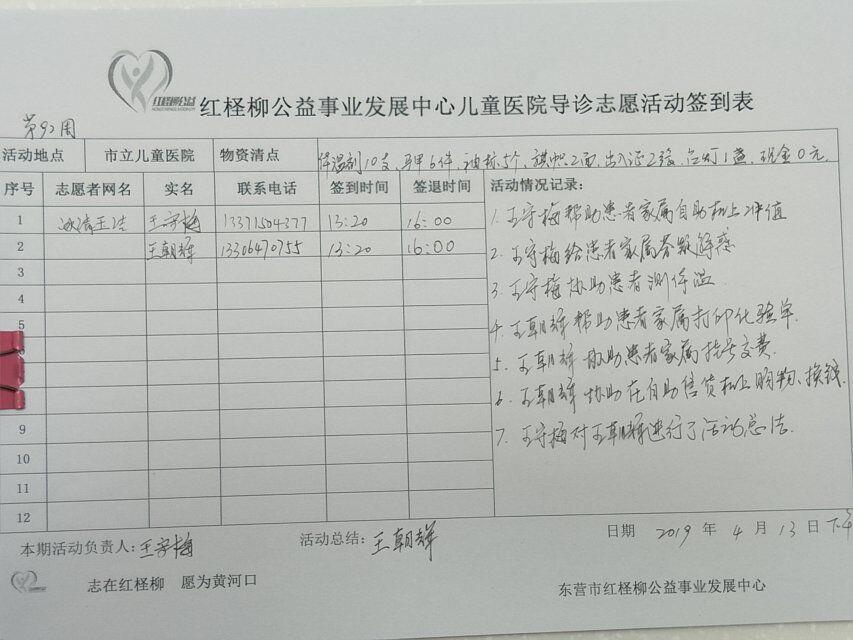 红柽柳公益
红柽柳公益事业发展中心儿童医院导诊志愿活动签到表
第92周
活动地点 市立儿童医院 物资清点 体温剂10支,马甲6件,袖标5个,旗帜2面,出入证2张,台灯1盏,现金0元.
序号 志愿者网名 实名 联系电话 签到时间 签退时间 活动情况记录:
1 冰清玉洁 王守梅 13371504377 13:20 16:00
2 王朝辉 13306490755 13:20 16:00
3
4
5
9
10
11
12
1. 王守梅帮助患者家属自助机上冲值
2. 王守梅给患者家属答疑解惑
3. 王守梅协助患者测体温.
4. 王朝辉帮助患者家属打印化验单.
5. 王朝辉协助患者家属挂号交费.
6. 王朝辉协助在自助售货机上购物、换钱.
7. 王守梅对王朝辉进行了活动总结.
本期活动负责人:王守梅 活动总结:王朝辉 日期 2019 年 4 月 13 日 下午
志在红柽柳 愿为黄河口 东营市红柽柳公益事业发展中心